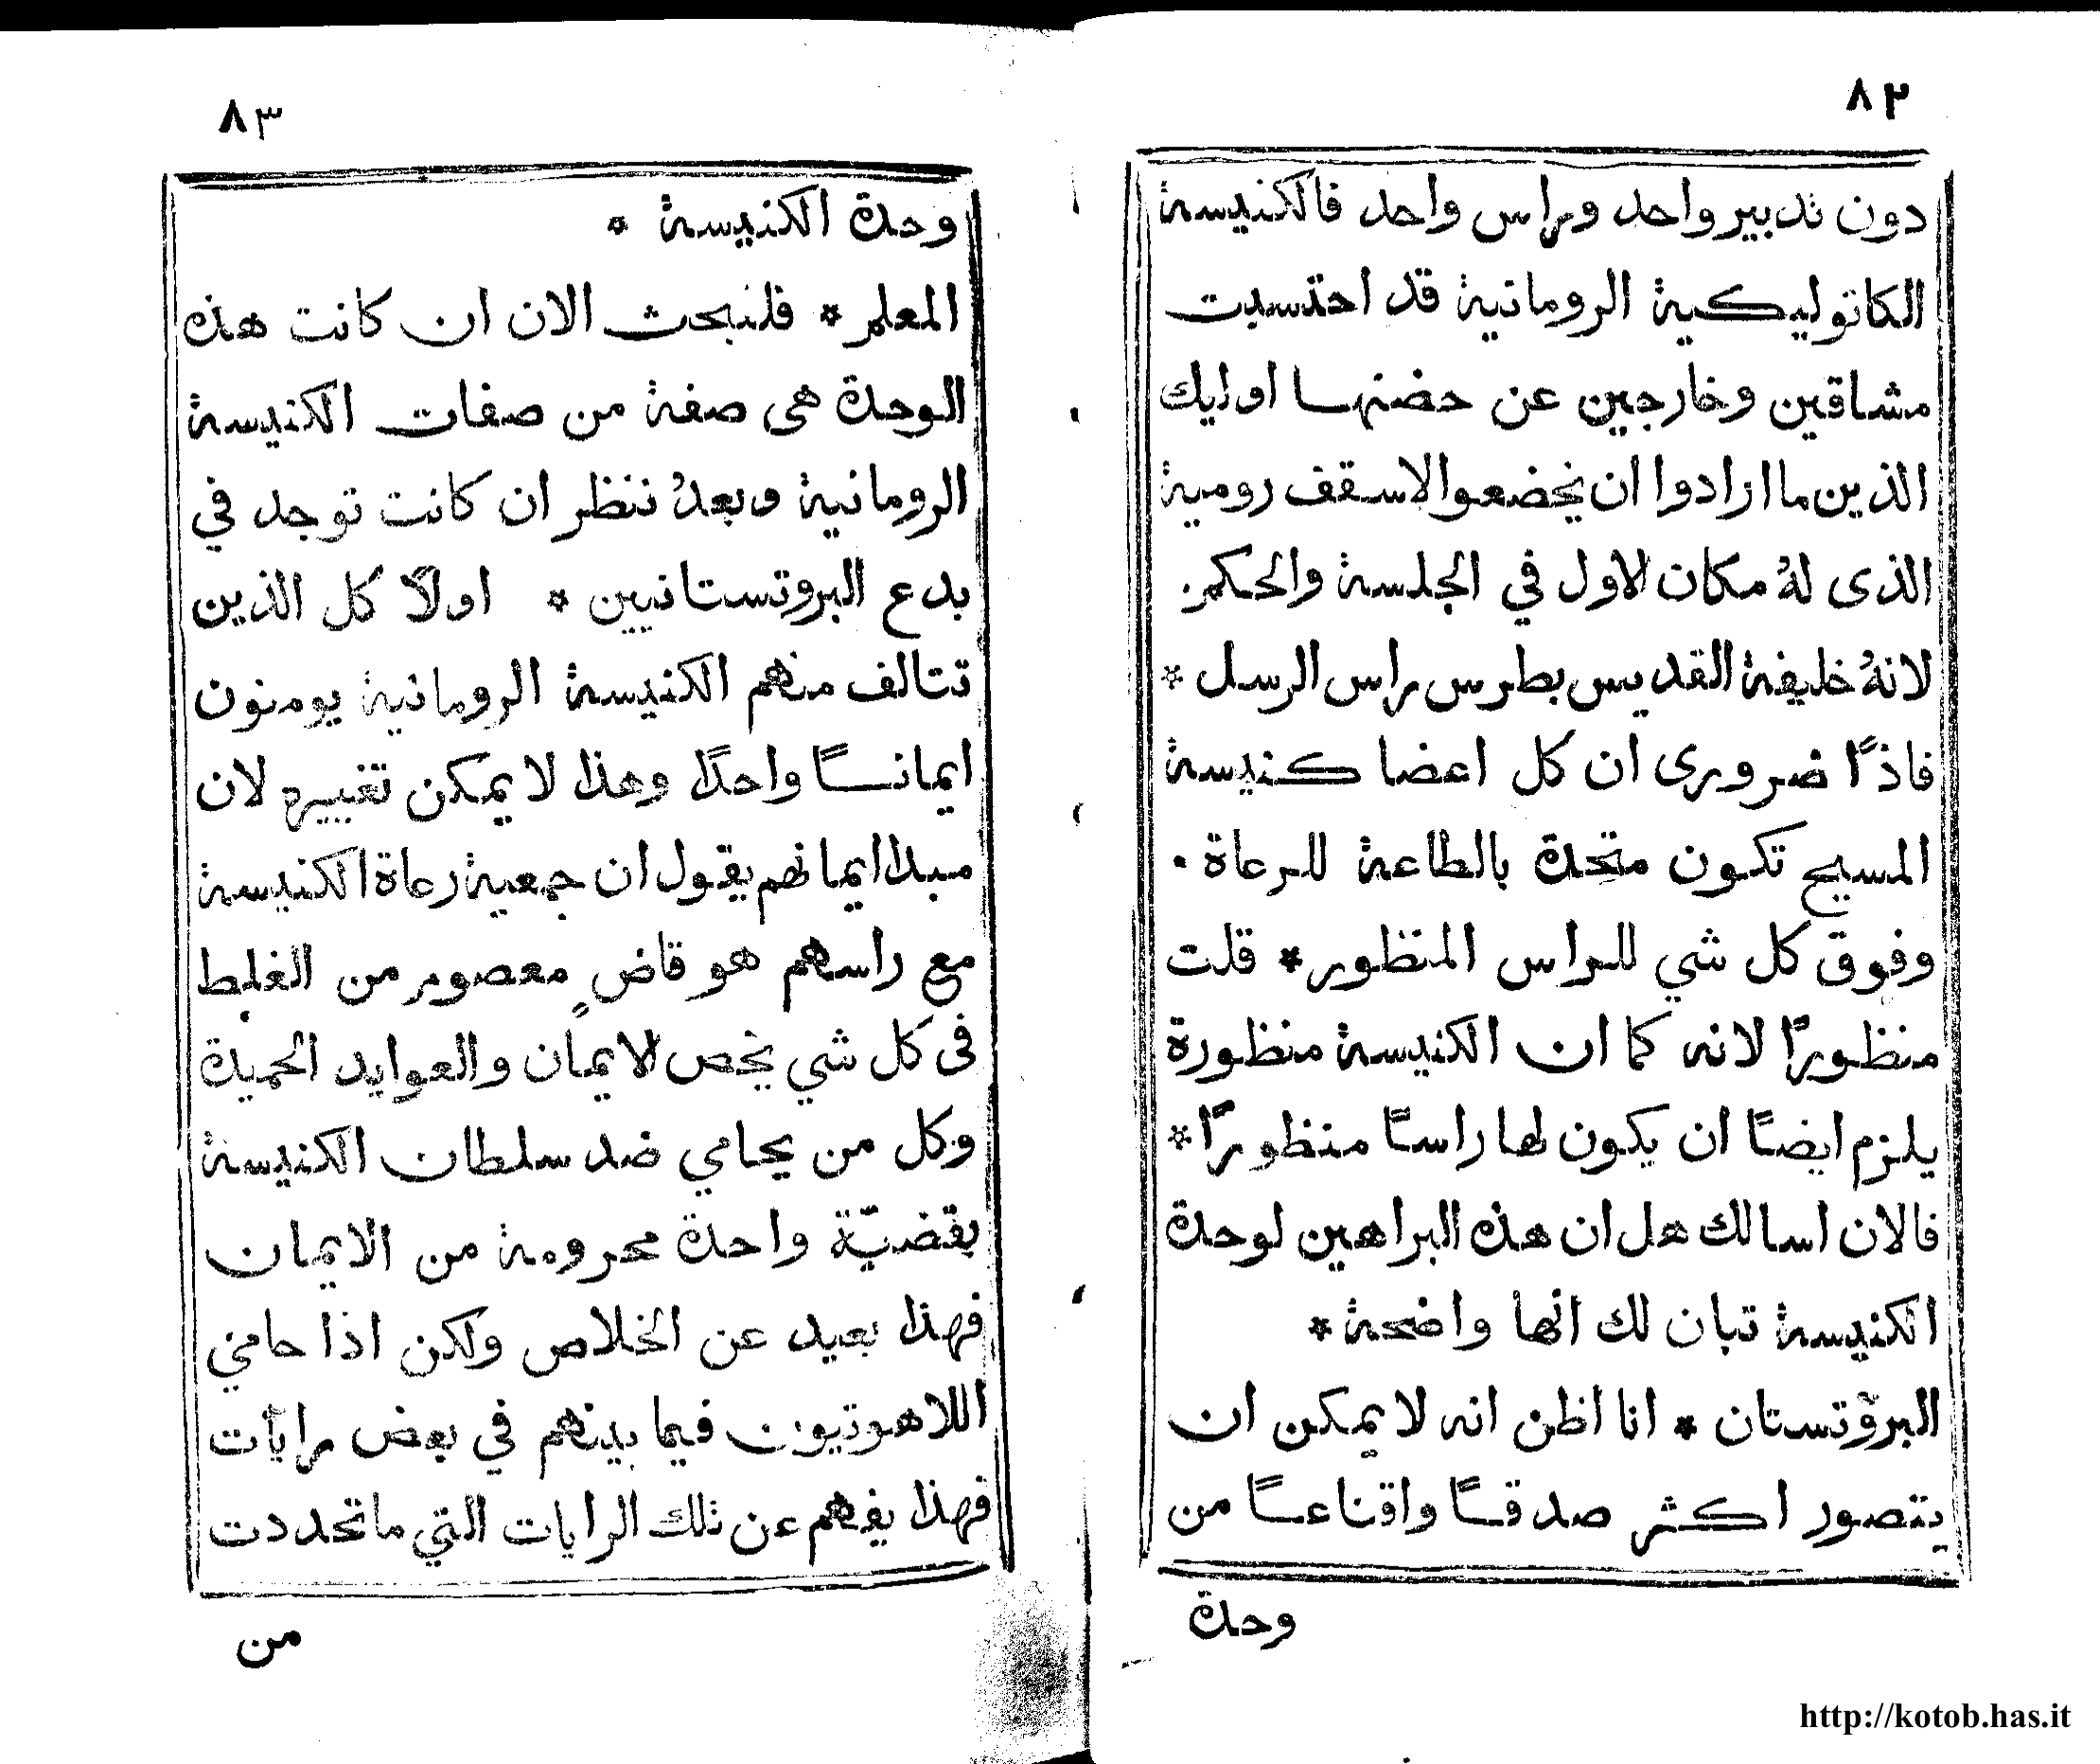 ٨٢
دون تدبير واحد وراس واحد فالكنيسة
الكاتوليكية الرومانية قد احتسبت
مشاقين وخارجين عن حضنها اوليك
الذين ما ارادوا ان يخضعوا لاسقف رومية
الذى لهُ مكان الاول في الجلسة والحكم.
لانهُ خليفة القديس بطرس راس الرسل *
فاذًا ضرورى ان كل اعضا كنيسة
المسيح تكون متحدة بالطاعة للرعاة .
وفوق كل شي للراس المنظور * قلت
منظورًا لانه كما ان الكنيسة منظورة
يلزم ايضًا ان يكون لها راسًا منظورًا *
فالان اسالك هل ان هذه البراهين لوحدة
الكنيسة تبان لك انها واضحة *
البروتستان * انا اظن انه لا يمكن ان
يتصور اكثر صدقًا واقناعًا من
وحدة
٨٣
وحدة الكنيسة *
المعلم * فلنبحث الان ان كانت هذه
الوحدة هى صفة من صفات الكنيسة
الرومانية وبعدهُ ننظر ان كانت توجد في
بدع البروتستانيين * اولًا كل الذين
تتالف منهم الكنيسة الرومانية يومنون
ايمانًا واحدًا وهذا لا يمكن تغييره لان
مبدا ايمانهم يقول ان جمعية رعاة الكنيسة
مع راسهم هو قاضٍ معصوم من الغلط
فى كل شي يخص الايمان والعوايد الحميدة
وكل من يحامي ضد سلطان الكنيسة
بقضيّة واحدة محرومة من الايمان
فهذا بعيد عن الخلاص ولكن اذا حامي
اللاهوتيون فيما بينهم في بعض رايات
فهذا يفهم عن تلك الرايات التي ما تحددت
من
http://kotob.has.it